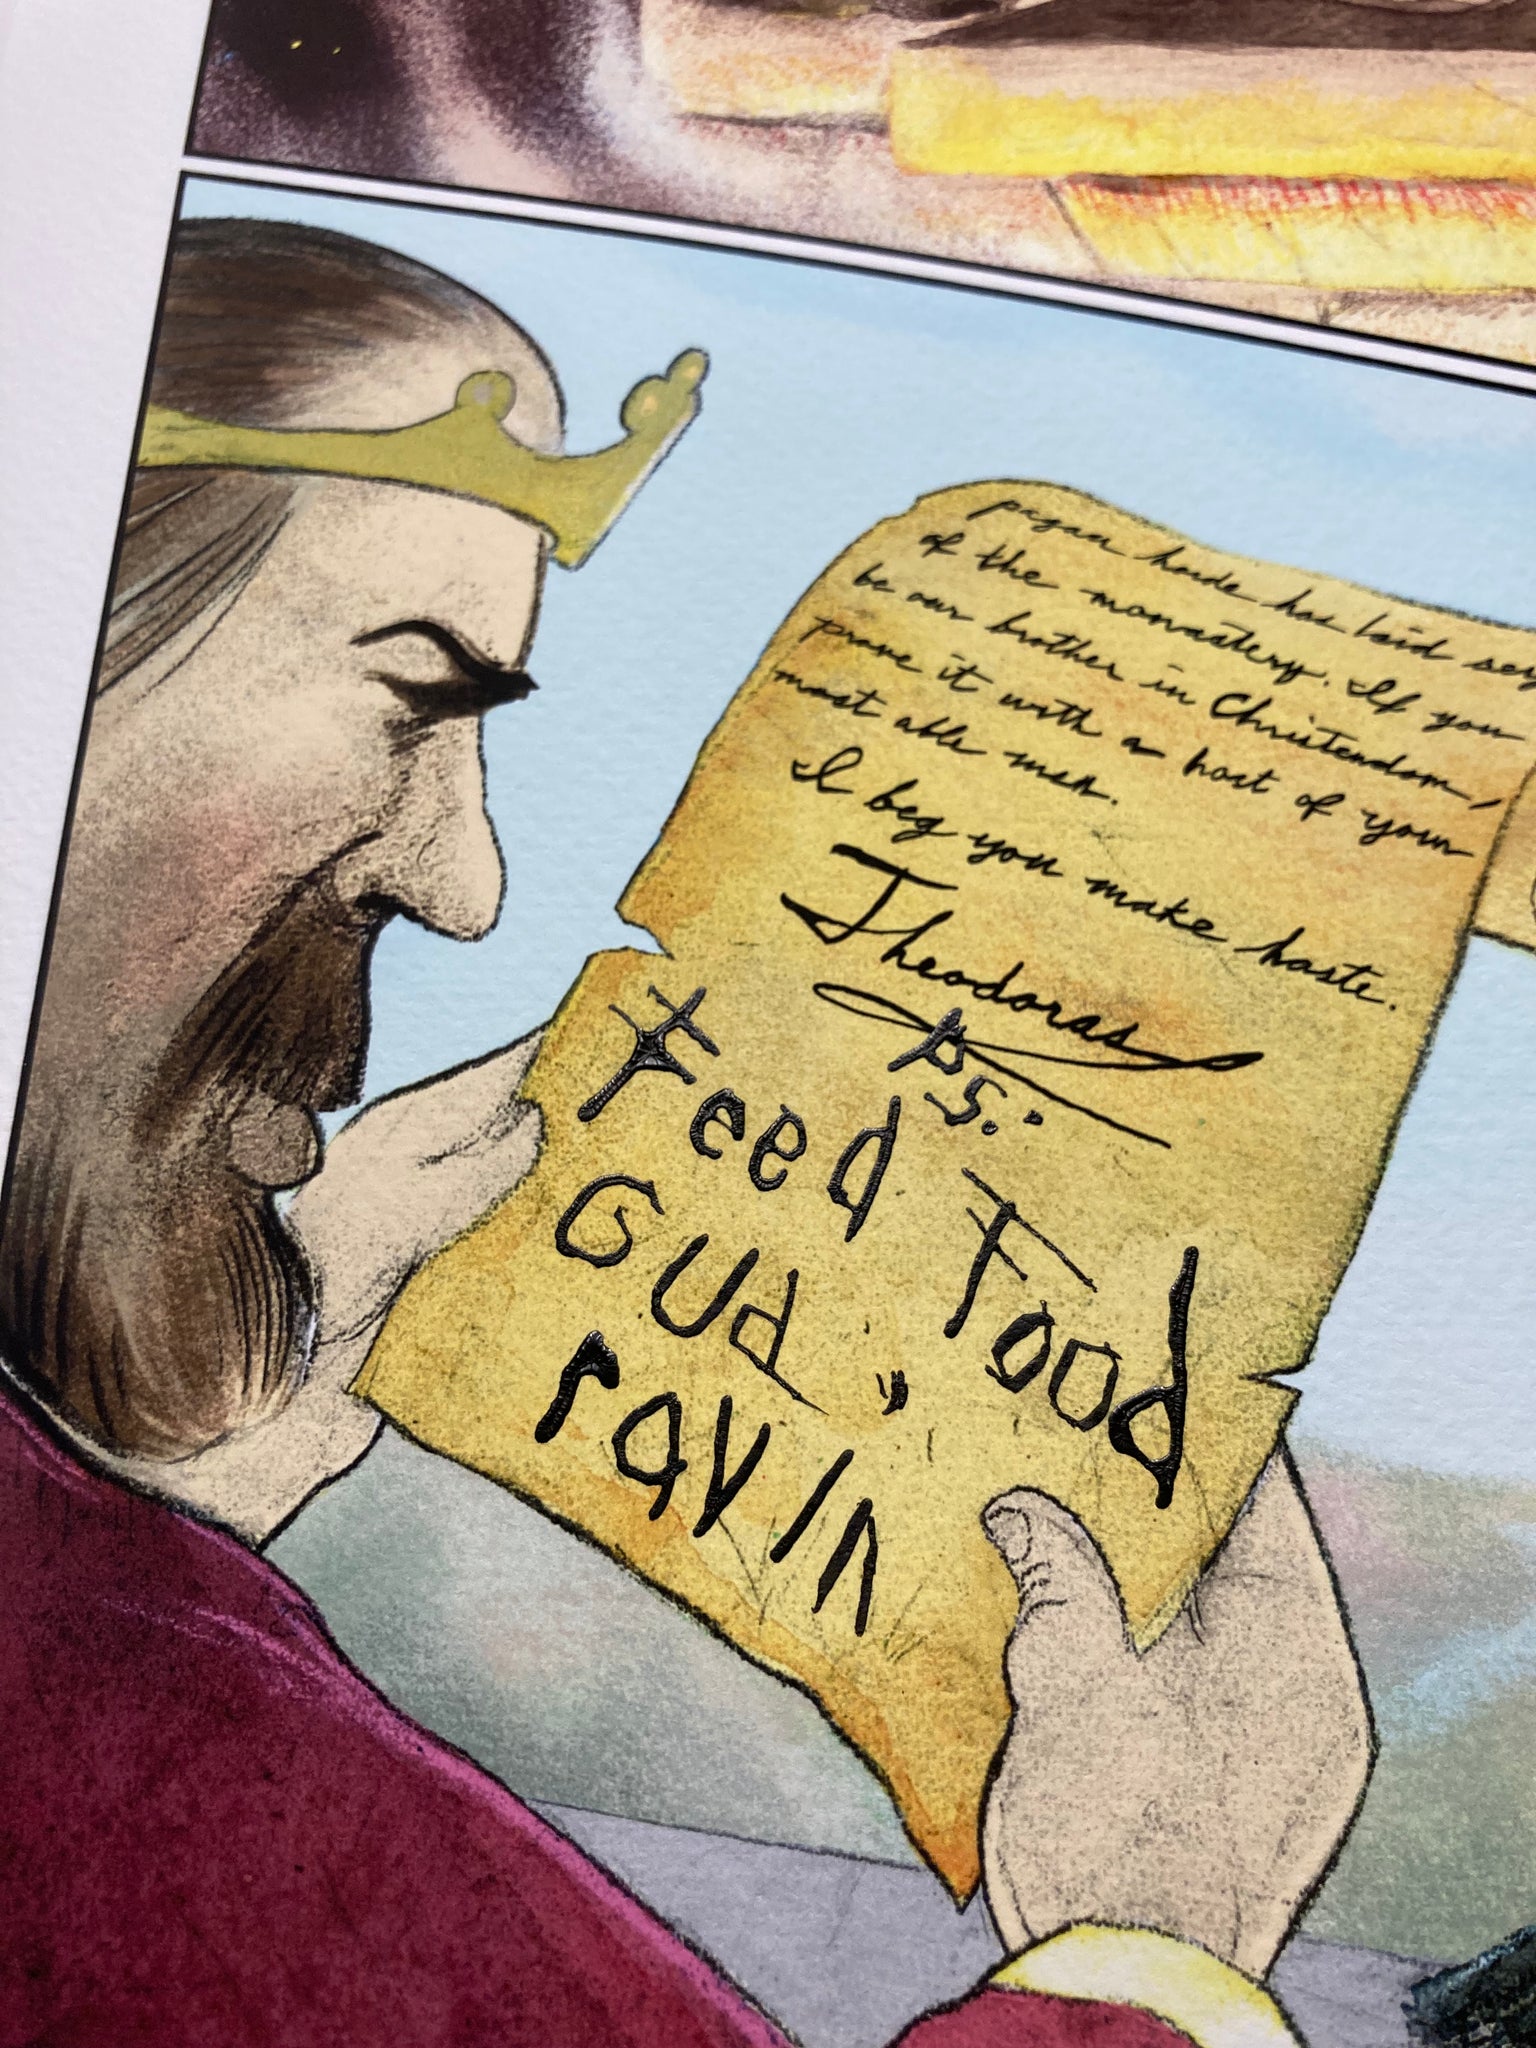 pagan horde has laid
of the monastery. If you
be our brother in Christendom,
prove it with a host of your
most able men.
I beg you make haste.
Theodoras
ps.:
Feed Food
Gud,,
ravin